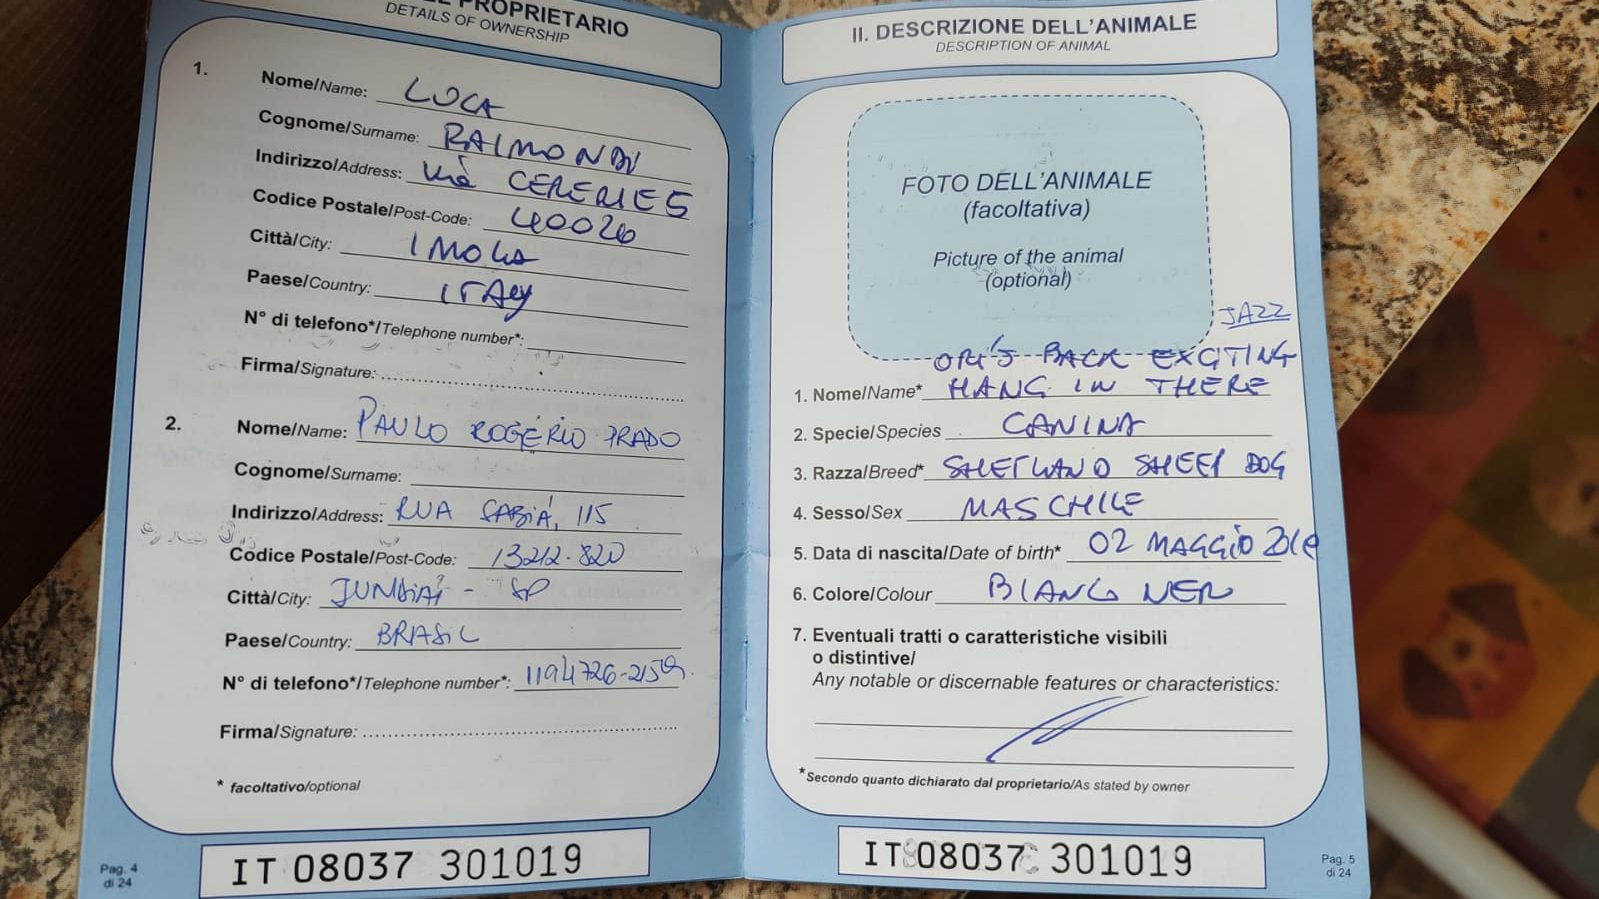 PROPRIETARIO
DETAILS OF OWNERSHIP
1.
Nome/Name: LUCA
Cognome/Surname: RAIMONDI
Indirizzo/Address: Via CERERIE 5
Codice Postale/Post-Code: 40026
Città/City: IMOLA
Paese/Country: ITALY
N° di telefono*/Telephone number*:
Firma/Signature:
2.
Nome/Name: PAULO ROGÉRIO PRADO
Cognome/Surname:
Indirizzo/Address: RUA SABIÁ, 115
Codice Postale/Post-Code: 13212-820
Città/City: JUNDIAÍ - SP
Paese/Country: BRASIL
N° di telefono*/Telephone number*: 1194726-2159
Firma/Signature:
* facoltativo/optional
Pag. 4
di 24
IT 08037 301019
II. DESCRIZIONE DELL'ANIMALE
DESCRIPTION OF ANIMAL
FOTO DELL'ANIMALE
(facoltativa)
Picture of the animal
(optional)
JAZZ
ORI'S BACK EXCITING
1. Nome/Name* HANG IN THERE
2. Specie/Species CANINA
3. Razza/Breed* SHETLAND SHEEP DOG
4. Sesso/Sex MASCHILE
5. Data di nascita/Date of birth* 02 MAGGIO
6. Colore/Colour BIANCO NERO
7. Eventuali tratti o caratteristiche visibili
o distintive/
Any notable or discernable features or characteristics:
*Secondo quanto dichiarato dal proprietario/As stated by owner
IT 08037 301019
Pag. 5
di 24